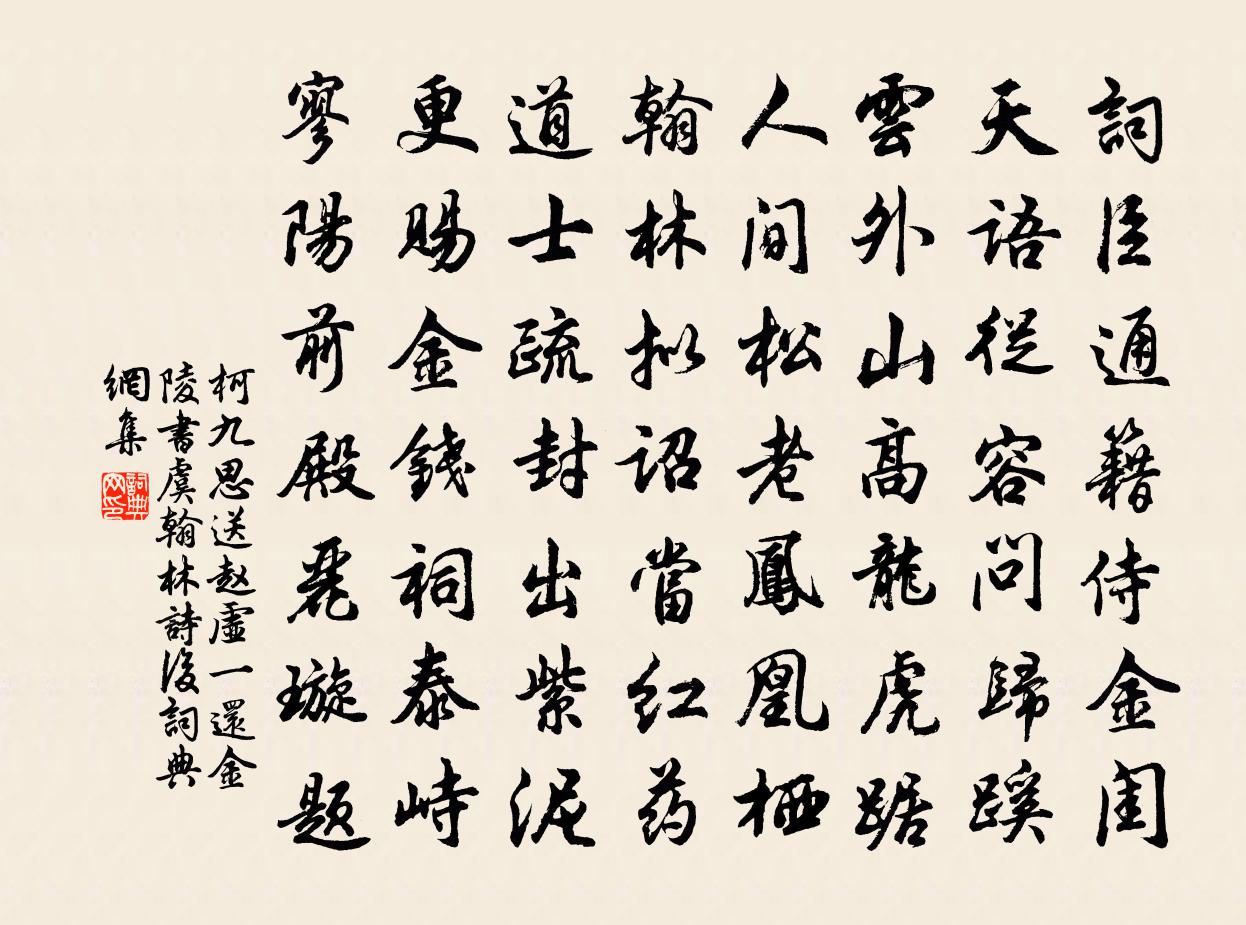 詞臣通籍侍金闺
天语從容問歸蹊
雲外山高龍虎踞
人间松老鳳凰栖
翰林拟诏當红药
道士疏封出紫泥
更赐金錢祠泰峙
寥陽前殿麗璇题
柯九思送赵虚一還金
陵書虞翰林詩後詞典
網集
詞典网印